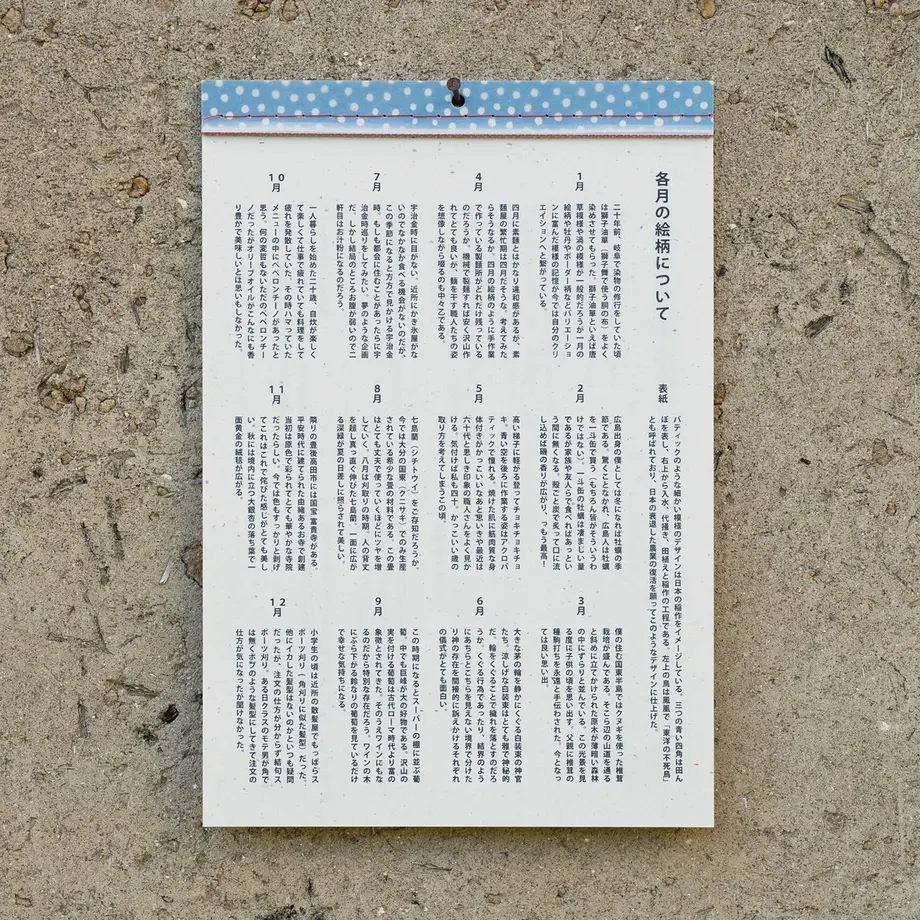 各月の絵柄について
表紙
バティックのような細かい模様のデザインは日本の稲作をイメージしている。三つの青い四角は田ん
ぼを表し、右上から入水、代掻き、田植えと稲作の工程である。左上の鳥は鳳凰で「東洋の不死鳥」
とも呼ばれており、日本の衰退した農業の復活を願ってこのようなデザインに仕上げた。
1月
二十年前、岐阜で染物の修行をしていた頃
は獅子油単（獅子舞で使う胴の布）をよく
染めさせてもらった。獅子油単といえば唐
草模様や渦の模様が一般的だろうが一月の
絵柄や牡丹やボーダー柄などバリエーショ
ンに富んだ模様の記憶が今では自分のクリ
エイションへと繋がっている。
2月
広島出身の僕としては冬になれば牡蠣の季
節である。驚くことなかれ、広島人は牡蠣
を一斗缶で買う（もちろん皆がそういうわ
けではない）。一斗缶の牡蠣は凄まじい量
であるが家族や友人らで食べればあっとい
う間に無くなる。殻ごと炭で炙って口に流
し込めば磯の香りが広がり、っもう最高！
3月
僕の住む国東半島ではクヌギを使った椎茸
栽培が盛んである。そこら辺の山道を通る
と斜めに立てかけられた原木が薄暗い森林
の中にずらりと並んでいる。この光景を見
る度に子供の頃を思い出す。父親に椎茸の
種駒打ちを永遠と手伝わされた。今となっ
ては良い思い出
4月
四月に素麺とはかなり違和感があるが、素
麺屋の繁忙期は四月だそうな。考えてみた
らそうなるか。四月の絵柄のように手作業
で作っている製麺所がどれだけ残っている
のだろうか。機械で製麺すれば安く沢山作
れてとても良いが、麺を干す職人たちの姿
を想像しながら啜るのも中々乙である。
5月
高い梯子に軽がる登ってチョキチョキチョ
キ。青い空を後ろに作業する姿はアクロバ
ティックで憧れる。焼けた肌に筋肉質な身
体付きがかっこいいなあと思いきや最近は
六十代と思しき印象の職人さんをよく見か
ける。気付けば私も四十。かっこいい歳の
取り方を考えてしまうこの頃。
6月
大きな茅の輪を静かにくぐる白装束の神官
たち。涼しげな白装束はとても雅で神秘的
だ。輪をくぐることで穢れを落とすのだろ
うか。くぐる行為であったり、結界のよう
にあちらとこちらを見えない境界で分けた
り神の存在を間接的に訴えかけるそれぞれ
の儀式がとても面白い。
7月
宇治金時に目がない。近所にかき氷屋がな
いのでなかなか食べる機会がないのだが、
この季節になると方方で見かける宇治金
時。もしも都会に住むことがあったらに宇
治金時巡りをしてみたい。夢のような企画
だ。しかし結局のところお腹が弱いので二
軒目はお汁粉になるのだろう。
8月
七島藺（シチトウイ）をご存知だろうか。
今では大分の国東（クニサキ）でのみ生産
されている希少な畳の材料である。この畳
はとても丈夫で使っていくほどにツヤを増
していく。八月は刈取りの時期。人の背丈
を超し真っ直ぐ伸びた七島藺。一面に広が
る深緑が夏の日差しに照らされて美しい。
9月
この時期になるとスーパーの棚に並ぶ葡
萄。中でも巨峰が大の好物である。沢山の
実を付ける葡萄は古代ローマ時代より富の
象徴とされてきた。そのうえワインにもな
るのだから特別な存在だろう。ワインの木
にぶら下がる鈴なりの葡萄を見ているだけ
で幸せな気持ちになる。
10月
一人暮らしを始めた二十歳。自炊が楽しく
て楽しくて仕事で疲れていても料理をして
疲れを発散していた。その時ハマっていた
メニューの中にペペロンチーノがあったと
思う。何の変哲もないただのペペロンチー
ノだったがオリーブオイルがこんなにも香
り豊かで美味しいとは思いもしなかった。
11月
隣りの豊後高田市には国宝 富貴寺がある。
平安時代に建てられた由緒あるお寺で創建
当初は原色で彩られてとても華やかな寺院
だったらしい。今では色もすっかりと剥げ
てこれはこれで侘びた感じがとても美し
い。秋には境内に立つ大銀杏の落ち葉で一
面黄金の絨毯が広がる。
12月
小学生の頃は近所の散髪屋でもっぱらス
ポーツ刈り（角刈りに似た髪型）だった。
他にイカした髪型はないのかといつも疑問
だったが、注文の仕方が分からず結句ス
ポーツ刈り。ある日クラスのモテ男が角で
は無くボブのような髪型にしてきて注文の
仕方が気になったが聞けなかった。